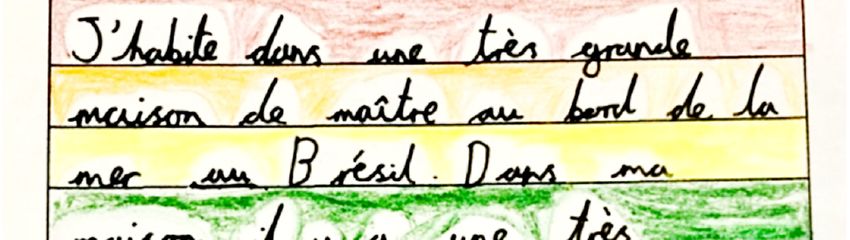 J'habite dans une très grande
maison de maître au bord de la
mer au Brésil. Dans ma
maison il y a une très